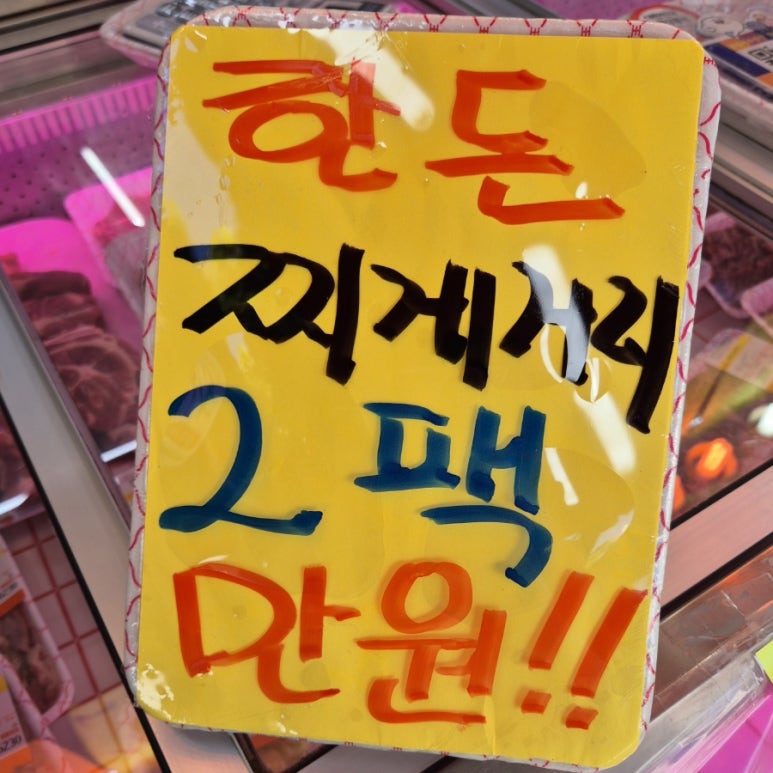 한돈
찌게꺼리
2팩
만원!!